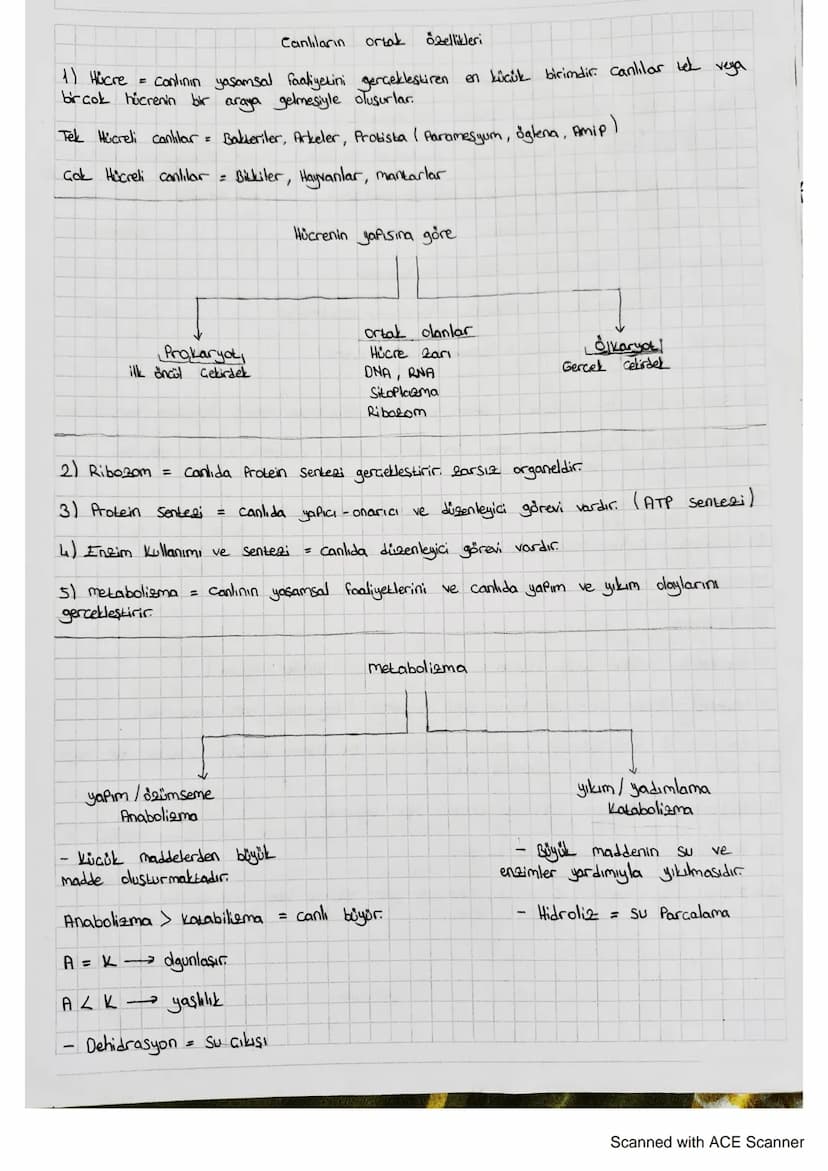 Canlıların ortak özellikleri
1) Hücre = canlının yaşamsal faaliyetini gerçekleştiren en küçük birimdir. Canlılar tek veya
birçok hücrenin bir araya gelmesiyle oluşurlar.
Tek Hücreli canlılar = Bakteriler, Arkeler, Protista (Paramesyum, öglena, Amip)
Çok Hücreli canlılar = Bitkiler, Hayvanlar, mantarlar
Hücrenin yapısına göre
Prokaryot
ilk öncül Çekirdek
ortak olanlar
Hücre zarı
DNA, RNA
Sitoplazma
Ribozom
Ökaryot
Gerçek çekirdek
2) Ribozom = canlıda Protein sentezi gerçekleştirir. zarsız organeldir.
3) Protein sentezi = canlıda yapıcı-onarıcı ve düzenleyici görevi vardır. (ATP sentezi)
4) Enzim kullanımı ve sentezi = canlıda düzenleyici görevi vardır.
5) metabolizma = canlının yaşamsal faaliyetlerini ve canlıda yapım ve yıkım olaylarını
gerçekleştirir.
metabolizma
yapım / özümseme
Anabolizma
- Küçük maddelerden büyük
madde oluşturmaktadır.
Anabolizma > katabilizma = canlı büyür.
A = K → olgunlaşır.
A < K → yaşlılık
- Dehidrasyon = su çıkışı
yıkım / yadımlama
Katabolizma
- Büyük maddenin su ve
enzimler yardımıyla yıkılmasıdır.
- Hidroliz = su Parçalama
Scanned with ACE Scanner